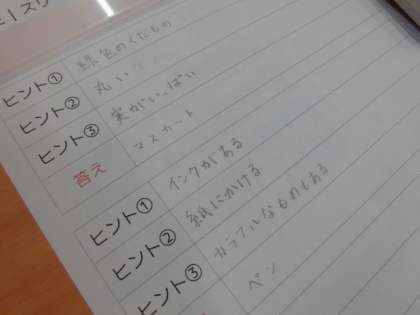 スリ
ヒント① 緑色のくだもの
ヒント② 丸い
ヒント③ 実がいっぱい
答え マスカット
ヒント① インクがある
ヒント② 紙にかける
ヒント③ カラフルなものもある
ペン